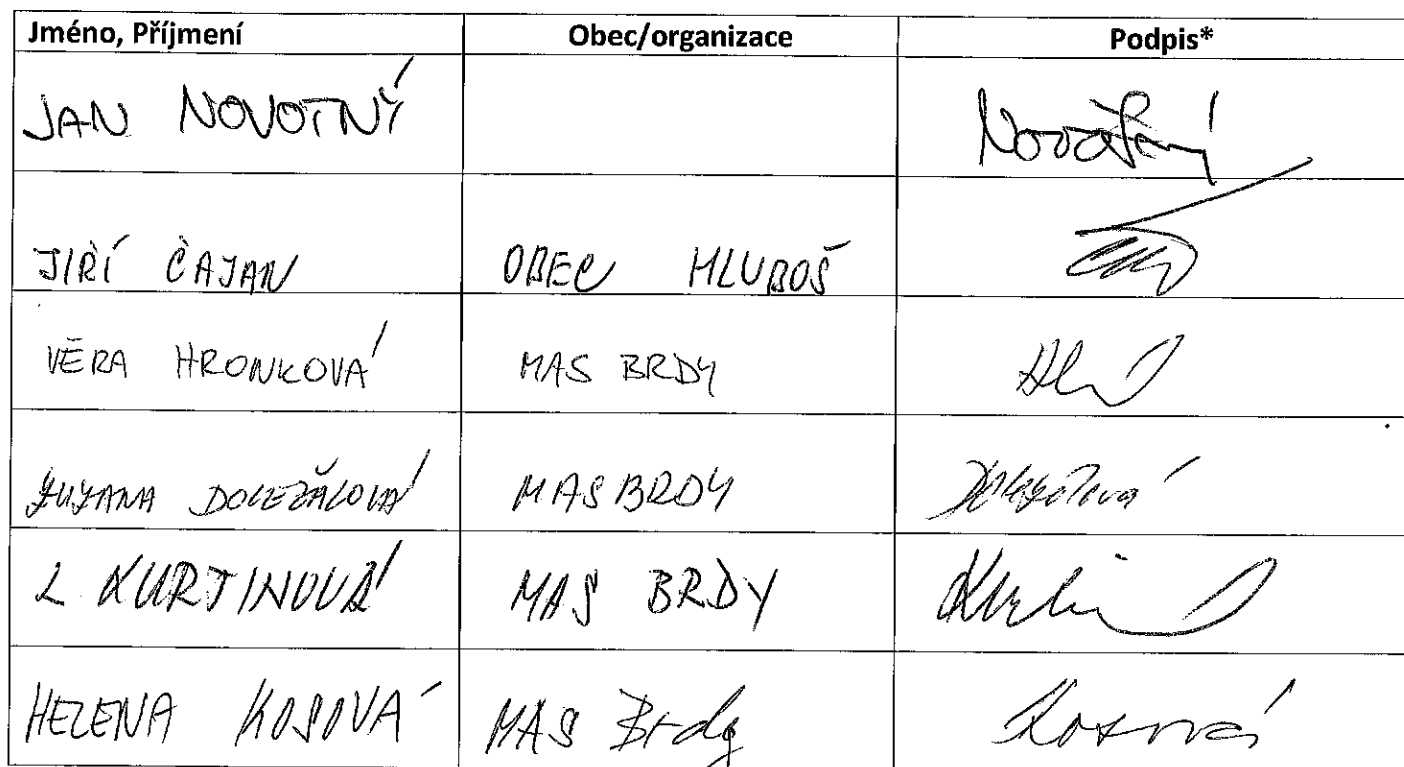 Jméno, Příjmení Obec/organizace Podpis*
JAN NOVOTNÝ Novotný
JIŘÍ ČAJAN OBEC HLUBOŠ
VĚRA HRONKOVÁ MAS BRDY
ZUZANA DOLEŽALOVÁ MAS BRDY Doležalová
L KURTINOVÁ MAS BRDY
HELENA KOSOVÁ MAS Brdy Kosová